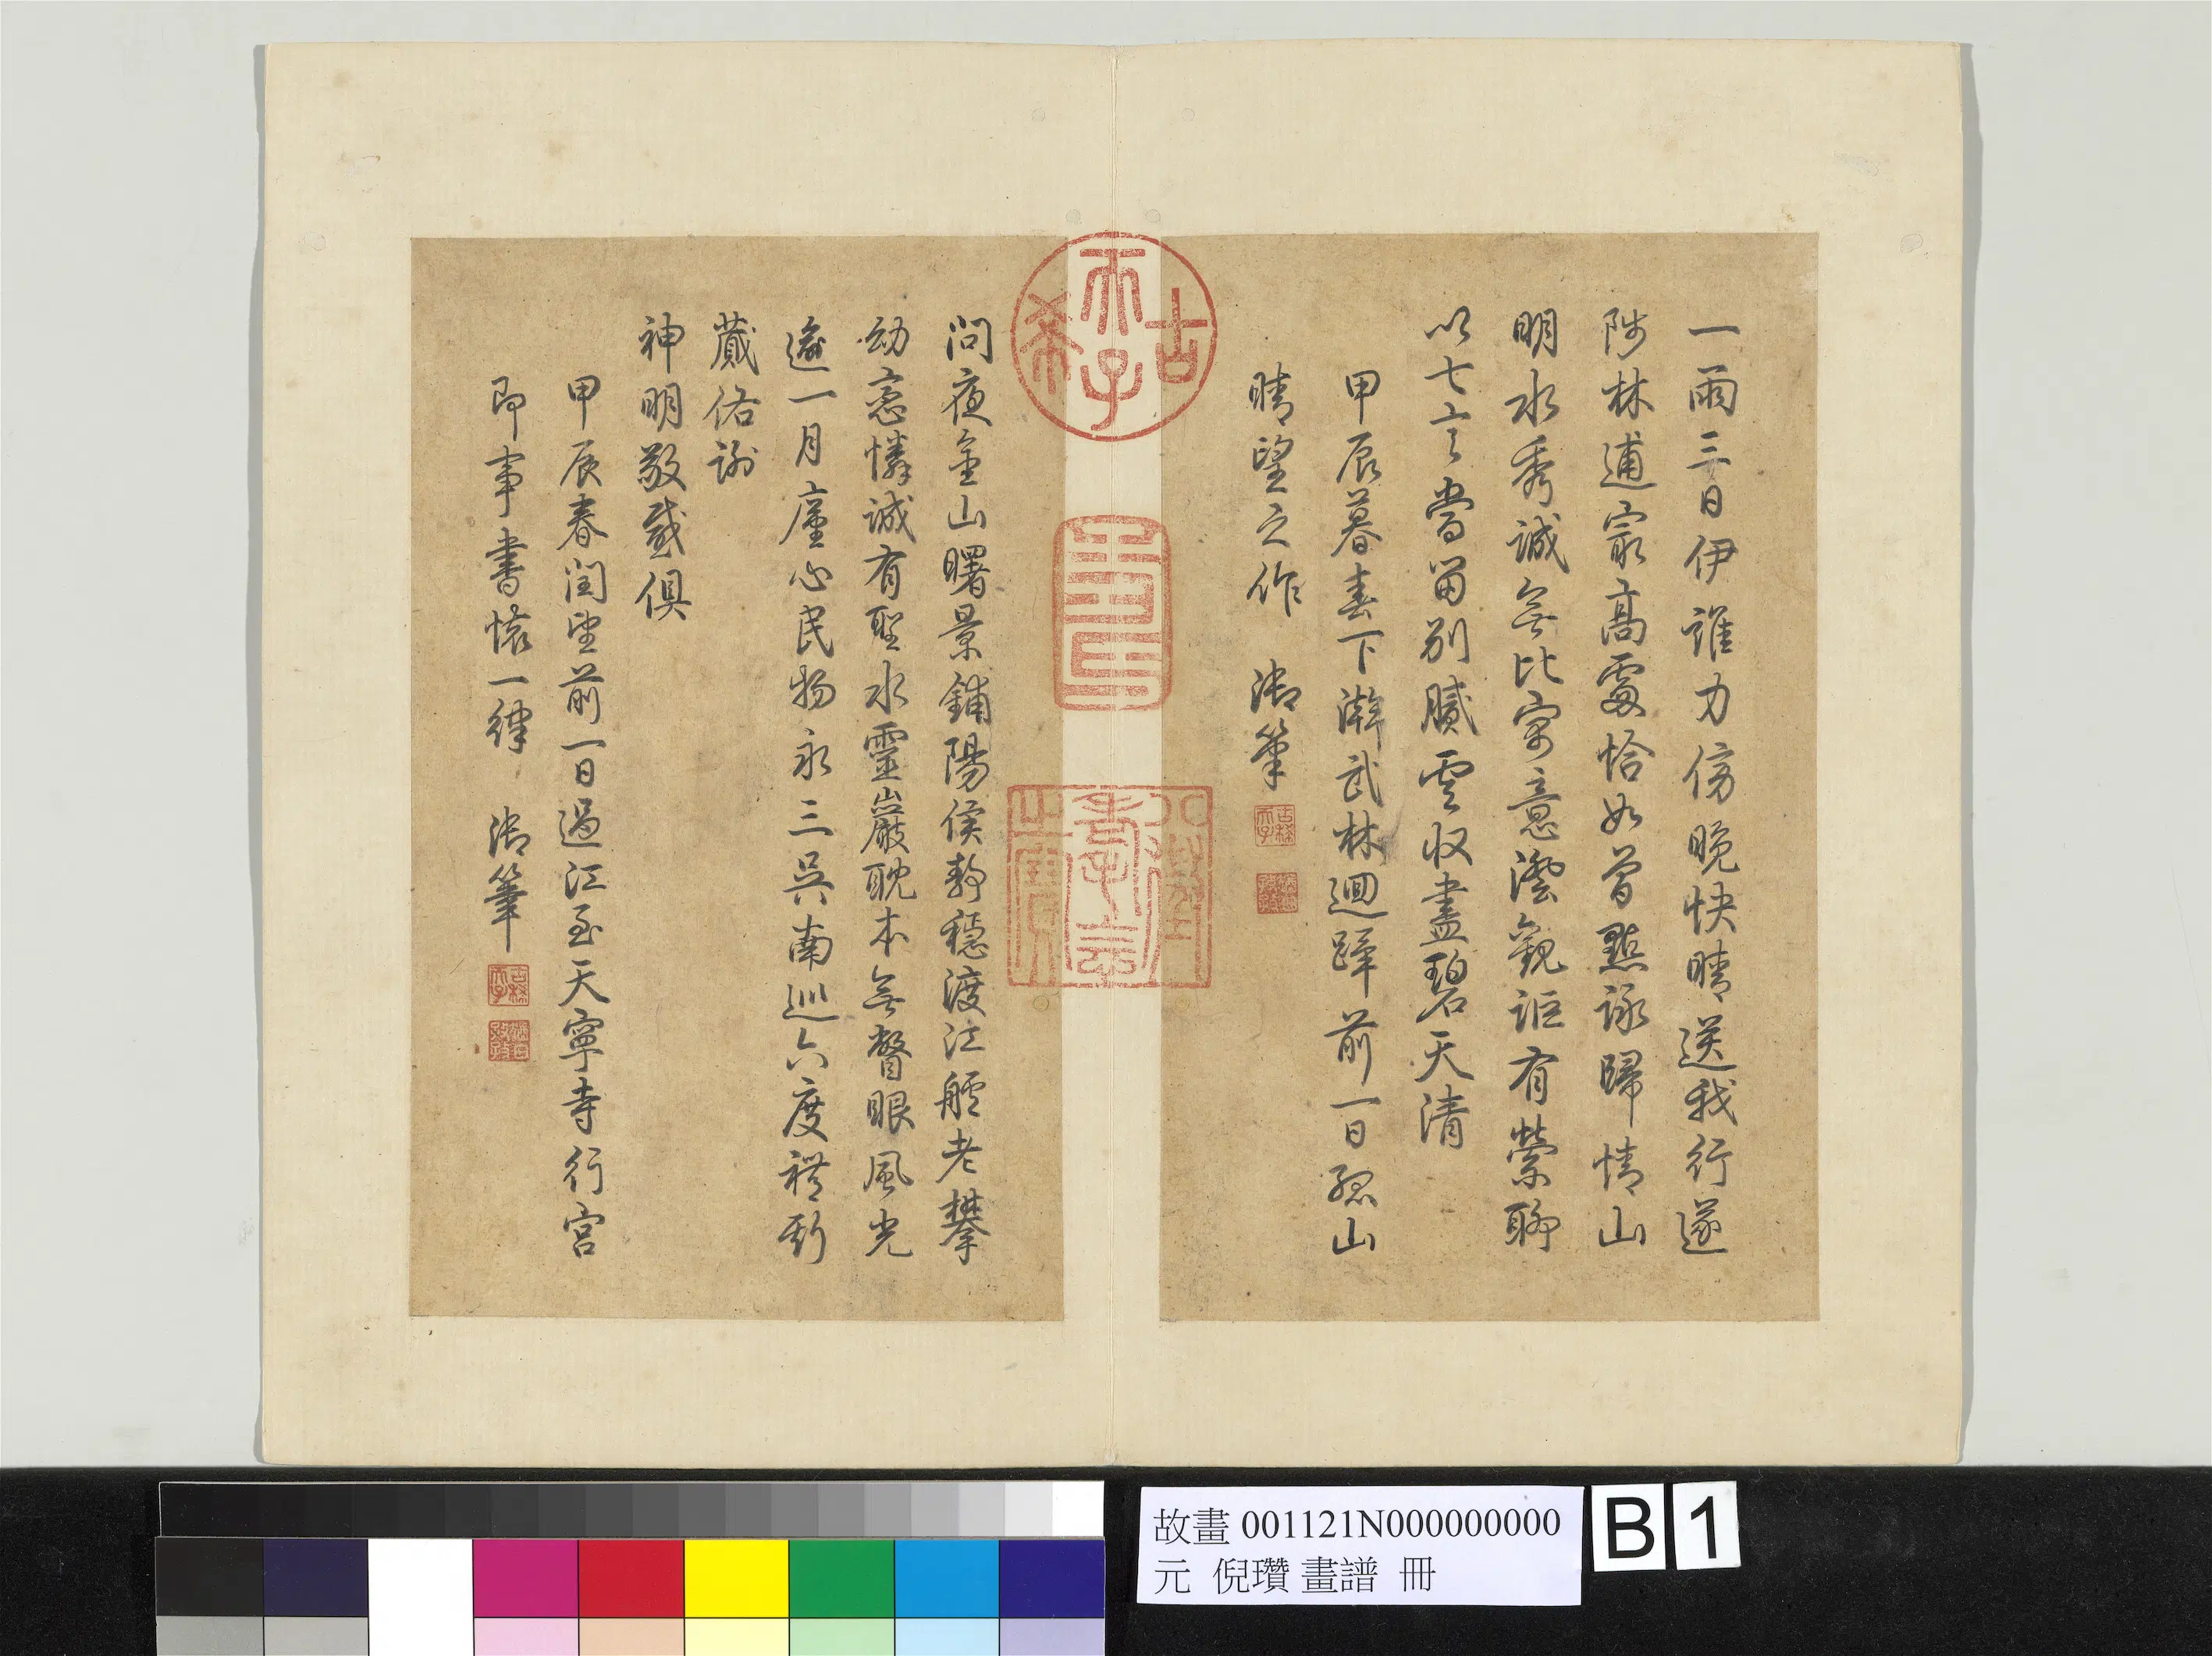 一雨三日伊誰力傍晚快晴送我行遂
陟林逋家高處恰如曾點詠歸情山
明水秀誠無比寓意澐觀詎有縈聊
以七言當留別膩雲收盡碧天清
甲辰暮春下澣武林迴蹕前一日孤山
晴望之作 御筆
古稀天子
問夜金山曙景鋪陽侯靜穩渡江艫老攀
幼戀憐誠有聖水靈巖耽本無瞥眼風光
遒一月廑心民物永三吳南巡六度禮斯
蕆佑謝
神明敬感俱
甲辰春閏望前一日過江至天寧寺行宮
即事書懷一律 御筆
古稀天子
猶日孜孜
古希天子
壽
八徵耄念之寶
故畫 001121N000000000
元 倪瓚 畫譜 冊
B 1